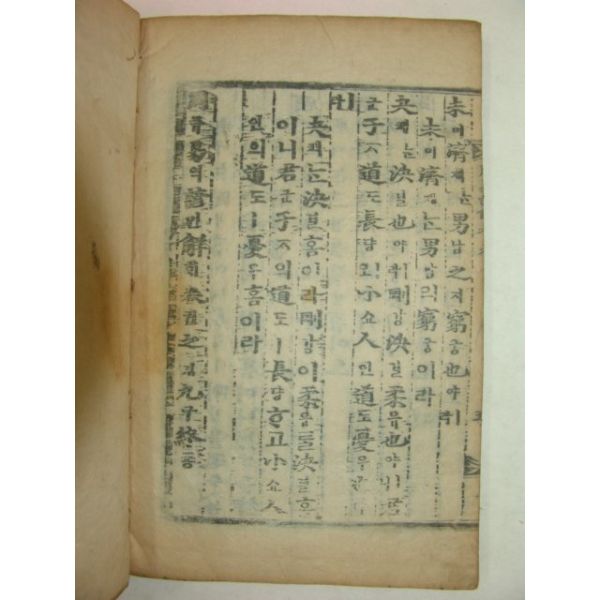 未미濟졔는男남之지窮궁也야ㅣ라
未미濟졔는男남의窮궁이라
夬쾌는決결也야ㅣ라剛강決결柔유也야ㅣ니君
군子ᄌᆞ道도長댱이오小쇼人인道도憂우
ㅣ라
夬쾌는決결홈이라剛강이柔유를決결홈
이니君군子ᄌᆞ의道도ㅣ長댱ᄒᆞ고小쇼人
인의道도ㅣ憂우홈이라
周쥬易역諺언解ᄒᆡ卷권之지九구終죵